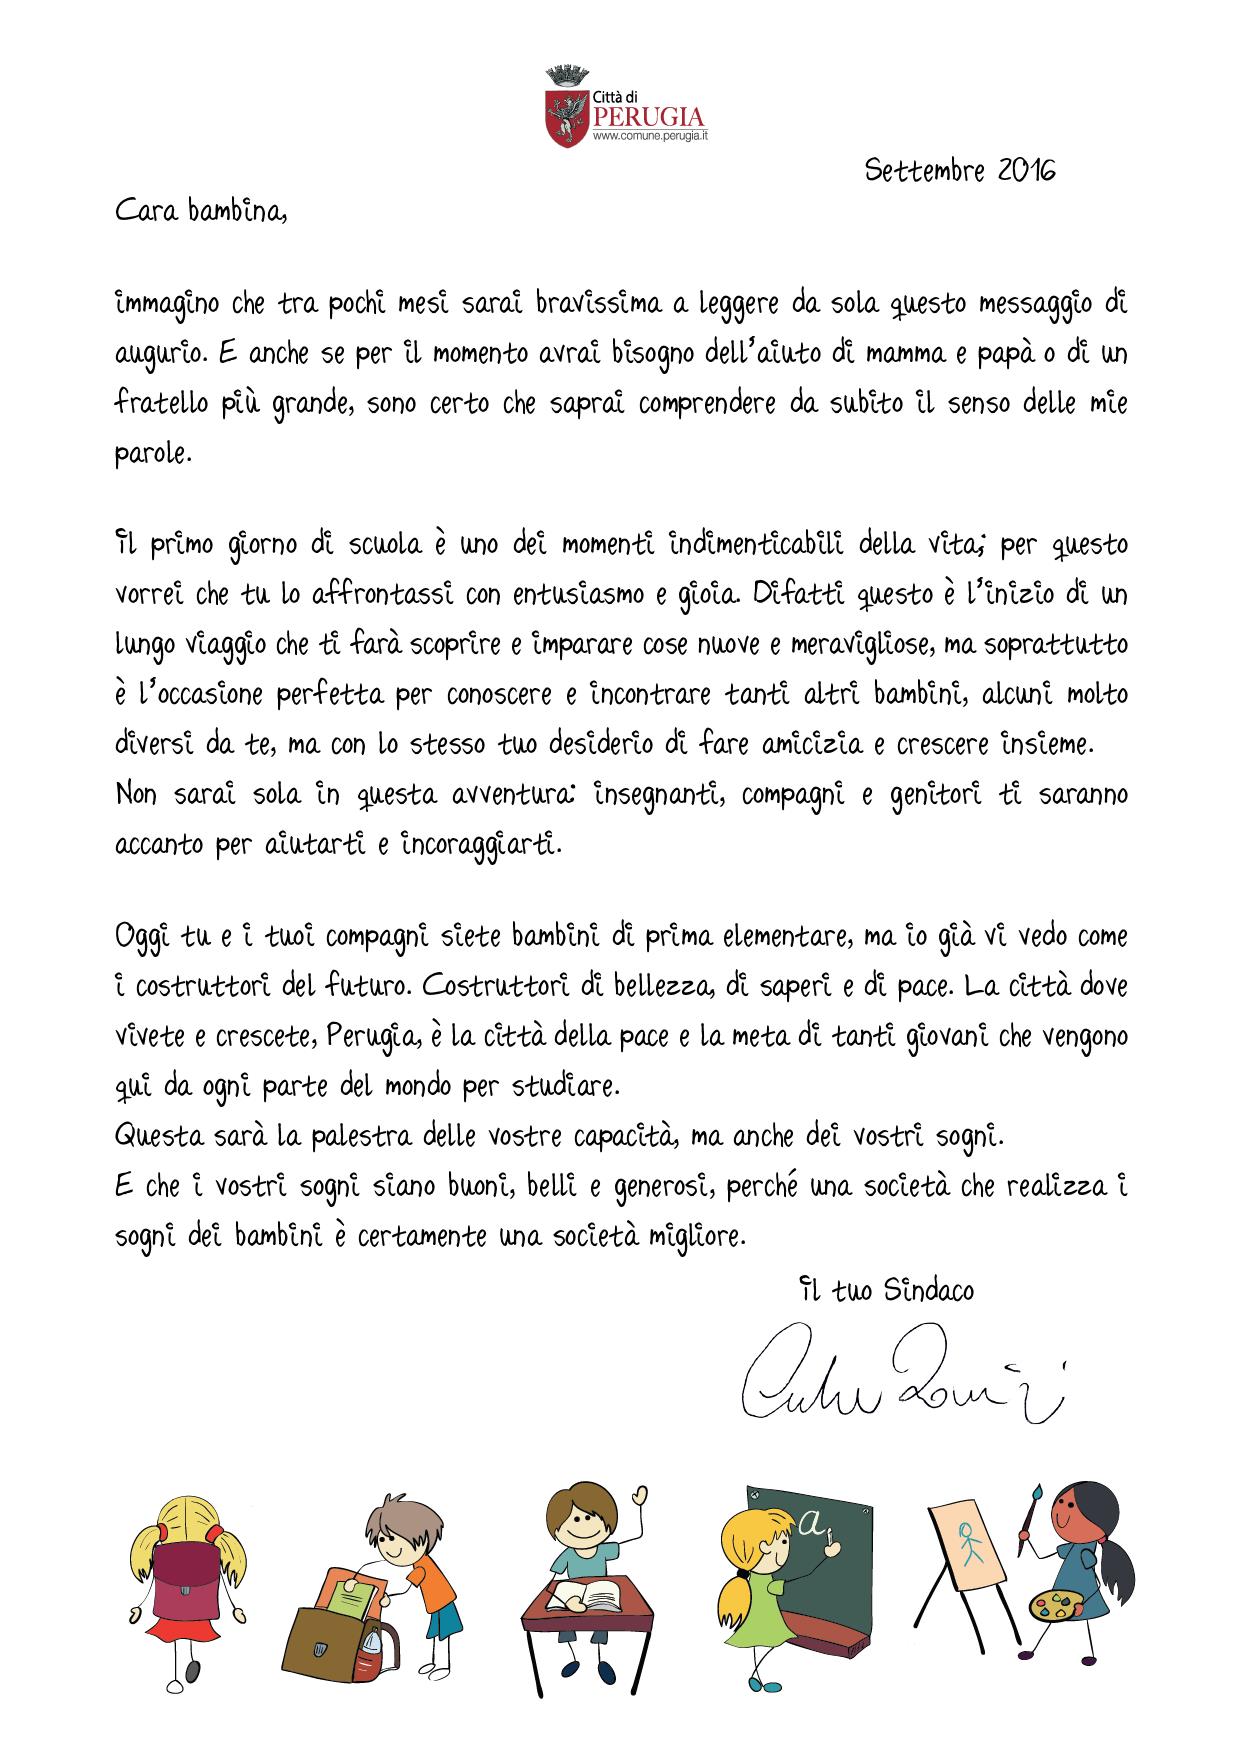 Città di
PERUGIA
www.comune.perugia.it
Settembre 2016
Cara bambina,
immagino che tra pochi mesi sarai bravissima a leggere da sola questo messaggio di
augurio. E anche se per il momento avrai bisogno dell'aiuto di mamma e papà o di un
fratello più grande, sono certo che saprai comprendere da subito il senso delle mie
parole.
Il primo giorno di scuola è uno dei momenti indimenticabili della vita; per questo
vorrei che tu lo affrontassi con entusiasmo e gioia. Difatti questo è l'inizio di un
lungo viaggio che ti farà scoprire e imparare cose nuove e meravigliose, ma soprattutto
è l'occasione perfetta per conoscere e incontrare tanti altri bambini, alcuni molto
diversi da te, ma con lo stesso tuo desiderio di fare amicizia e crescere insieme.
Non sarai sola in questa avventura: insegnanti, compagni e genitori ti saranno
accanto per aiutarti e incoraggiarti.
Oggi tu e i tuoi compagni siete bambini di prima elementare, ma io già vi vedo come
i costruttori del futuro. Costruttori di bellezza, di saperi e di pace. La città dove
vivete e crescete, Perugia, è la città della pace e la meta di tanti giovani che vengono
qui da ogni parte del mondo per studiare.
Questa sarà la palestra delle vostre capacità, ma anche dei vostri sogni.
E che i vostri sogni siano buoni, belli e generosi, perché una società che realizza i
sogni dei bambini è certamente una società migliore.
Il tuo Sindaco
a